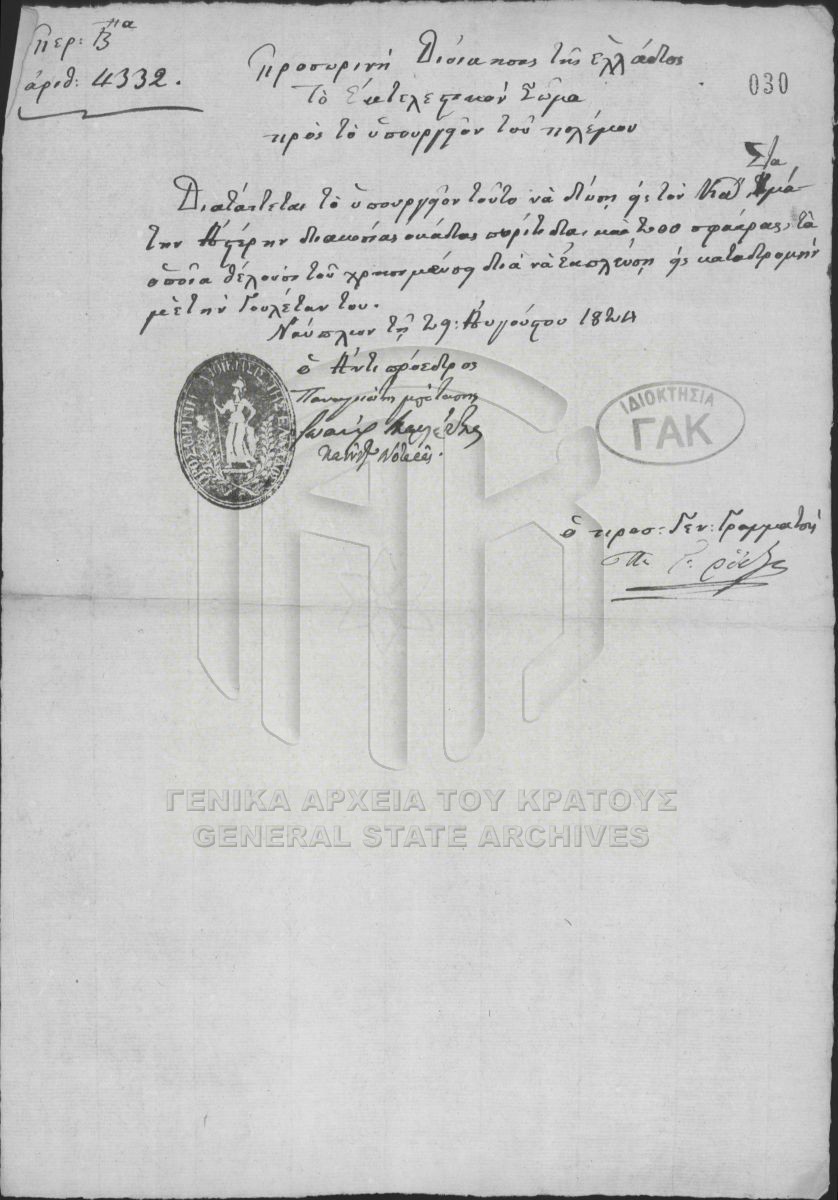 Περ: Βα
ἀριθ: 4332.
030
Προσωρινὴ Διοίκησις τῆς ἑλλάδος
Τὸ Ἐκτελεστικὸν Σῶμα
πρὸς τὸ ὑπουργεῖον τοῦ πολέμου
Διατάττεται τὸ ὑπουργεῖον τοῦτο νὰ δώσῃ εἰς τὸν
διακοσίας ὀκάδας πυρίτιδα, καὶ 200 σφαίρας, τὰ
ὁποῖα θέλουσι τοῦ χρησιμεύσῃ διὰ νὰ ἐκπλεύσῃ εἰς καταδρομὴν
μὲ τὴν Γουλέταν του.
Ναύπλιον τῇ 29: Αὐγούστου 1824
ὁ Ἀντιπρόεδρος
Παναγιώτης μπότασης
Ἰωάννης Κωλέττης
ΙΔΙΟΚΤΗΣΙΑ
ΓΑΚ
ὁ προσ: Γεν: Γραμματεὺς
ΓΕΝΙΚΑ ΑΡΧΕΙΑ ΤΟΥ ΚΡΑΤΟΥΣ
GENERAL STATE ARCHIVES